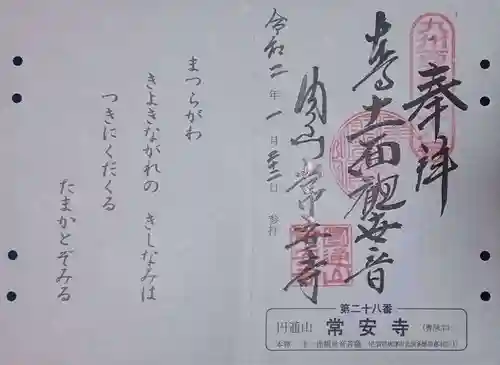 奉拝
十一面観世音
円通山 常安寺
令和二年一月廿一日 参拝
まつらがわ
きよきながれの きしなみは
つきにくだくる
たまかとぞみる
第二十八番
円通山 常安寺 (曹洞宗)
本尊 十一面観世音菩薩